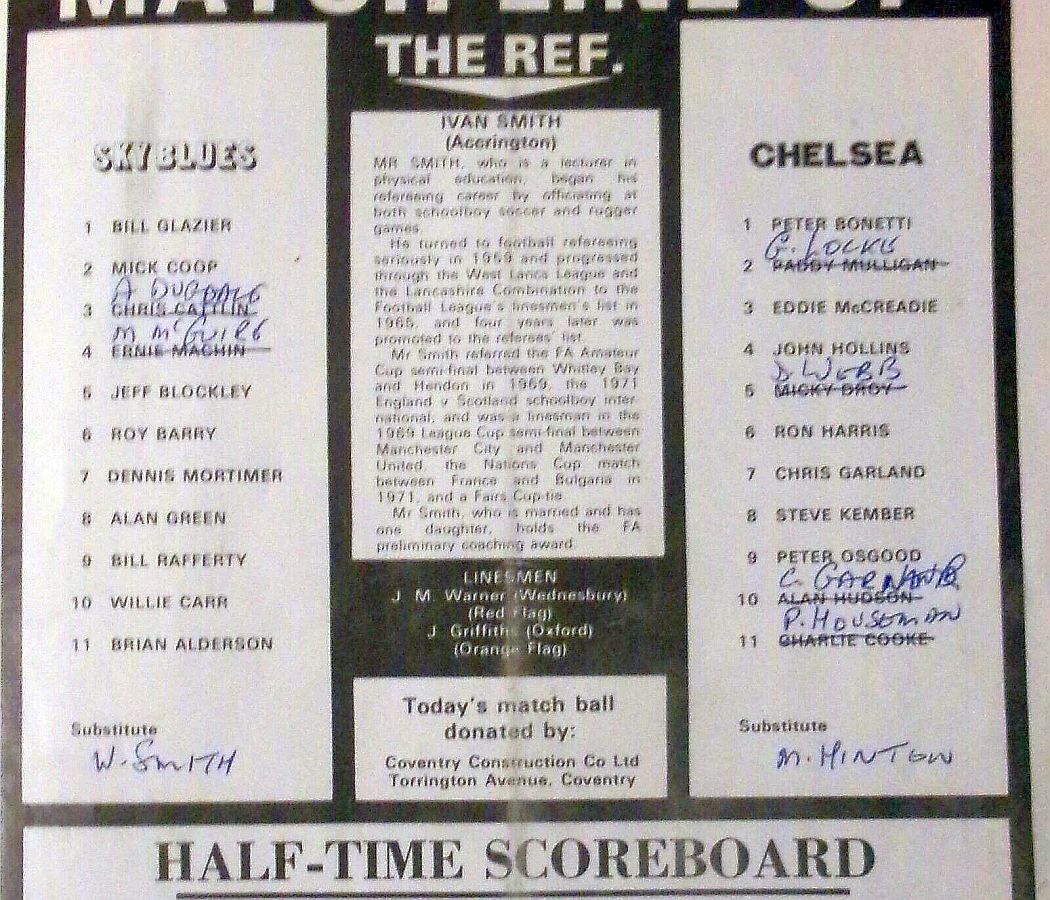 MATCH LINE-UP
THE REF.
SKY BLUES
1 BILL GLAZIER
2 MICK COOP
A DUGDALE
3 CHRIS CATTLIN
M McGUIRE
4 ERNIE MACHIN
5 JEFF BLOCKLEY
6 ROY BARRY
7 DENNIS MORTIMER
8 ALAN GREEN
9 BILL RAFFERTY
10 WILLIE CARR
11 BRIAN ALDERSON
Substitute
W. SMITH
IVAN SMITH
(Accrington)
MR SMITH, who is a lecturer in
physical education, began his
refereeing career by officiating at
both schoolboy soccer and rugger
games.
He turned to football refereeing
seriously in 1959 and progressed
through the West Lancs League and
the Lancashire Combination to the
Football League's linesmen's list in
1965, and four years later was
promoted to the referees' list.
Mr Smith referred the FA Amateur
Cup semi-final between Whitley Bay
and Hendon in 1969, the 1971
England v Scotland schoolboy inter-
national, and was a linesman in the
1969 League Cup semi-final between
Manchester City and Manchester
United, the Nations Cup match
between France and Bulgaria in
1971, and a Fairs Cup-tie.
Mr Smith, who is married and has
one daughter, holds the FA
preliminary coaching award.
LINESMEN
J. M. Warner (Wednesbury)
(Red Flag)
J. Griffiths (Oxford)
(Orange Flag)
Today's match ball
donated by:
Coventry Construction Co Ltd
Torrington Avenue, Coventry
CHELSEA
1 PETER BONETTI
G. LOCKE
2 PADDY MULLIGAN
3 EDDIE McCREADIE
4 JOHN HOLLINS
D. WEBB
5 MICKY DROY
6 RON HARRIS
7 CHRIS GARLAND
8 STEVE KEMBER
9 PETER OSGOOD
C. 
10 ALAN HUDSON
P. HOUSEMAN
11 CHARLIE COOKE
Substitute
M. HINTON
HALF-TIME SCOREBOARD